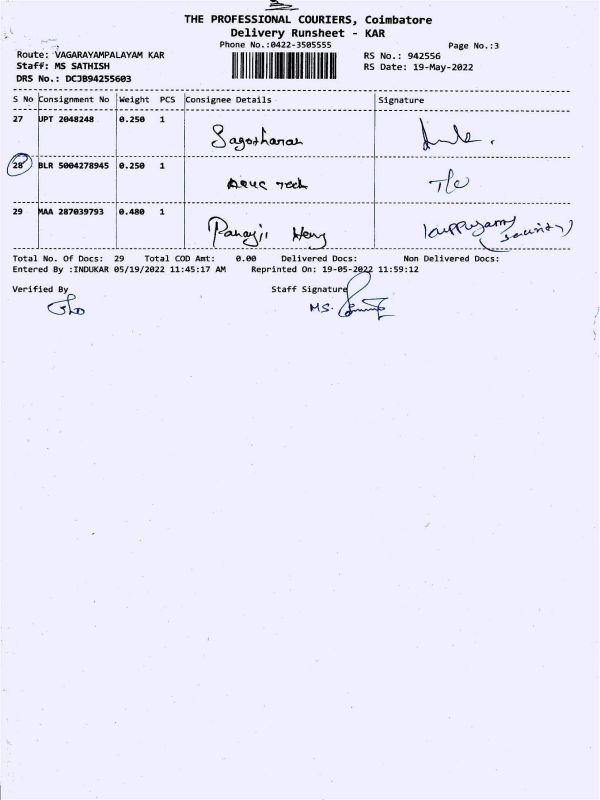 THE PROFESSIONAL COURIERS, Coimbatore
Delivery Runsheet - KAR
Phone No.:0422-3505555 Page No.:3
Route: VAGARAYAMPALAYAM KAR RS No.: 942556
Staff: MS SATHISH RS Date: 19-May-2022
DRS No.: DCJB94255603
S No Consignment No Weight PCS Consignee Details Signature
27 UPT 2048248 0.250 1
28 BLR 5004278945 0.250 1 Tech T/C
29 MAA 287039793 0.480 1
(Security)
Total No. Of Docs: 29 Total COD Amt: 0.00 Delivered Docs: Non Delivered Docs:
Entered By :INDUKAR 05/19/2022 11:45:17 AM Reprinted On: 19-05-2022 11:59:12
Verified By Staff Signature
MS.